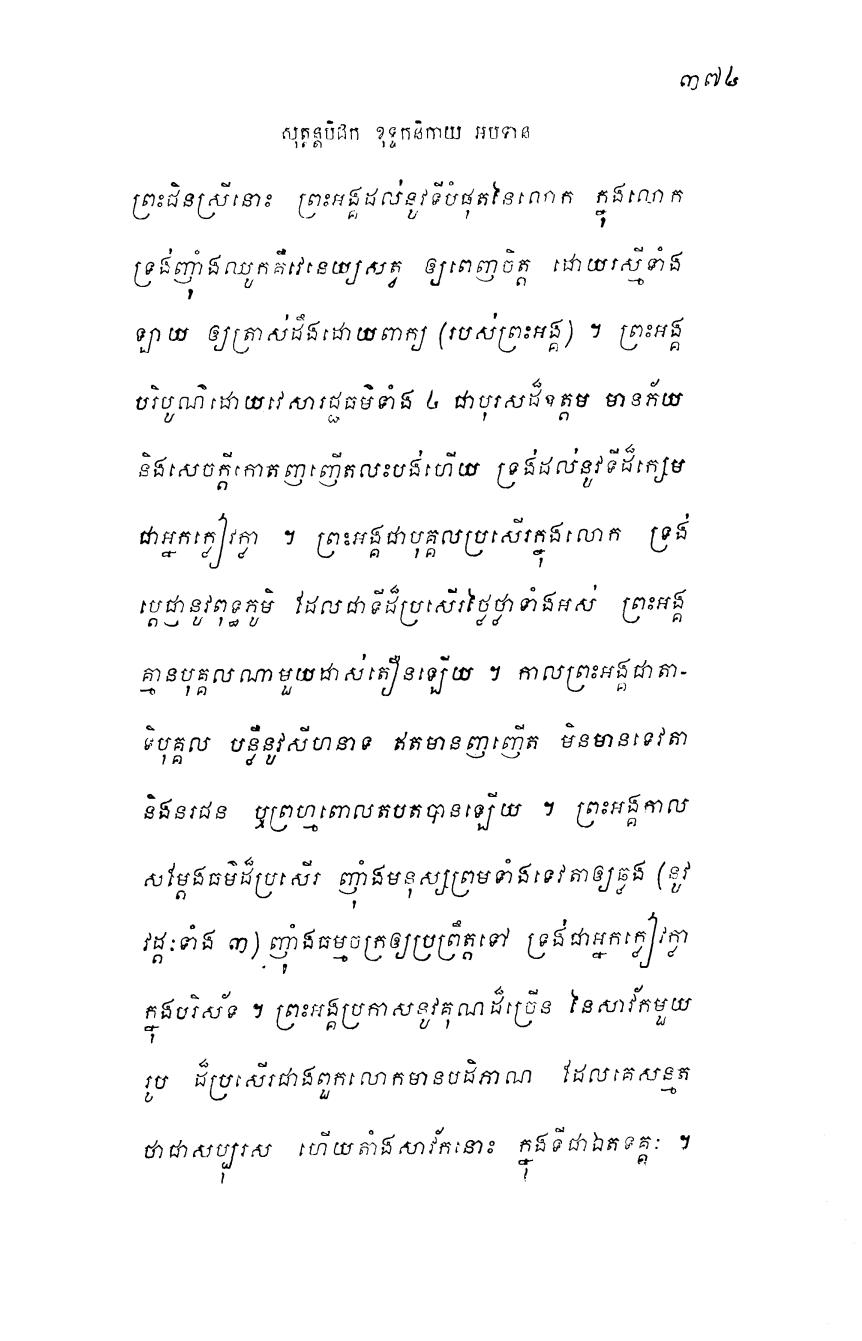 ៣៧៤
សុត្តន្តបិដក ខុទ្ទកនិកាយ អបទាន
ព្រះជិនស្រីនោះ ព្រះអង្គដល់នូវទីបំផុតនៃលោក ក្នុងលោក
ទ្រង់ញ៉ាំងឈូកគឺវេនេយ្យសត្វ ឲ្យពេញចិត្ត ដោយរស្មីទាំង
ឡាយ ឲ្យត្រាស់ដឹងដោយពាក្យ (របស់ព្រះអង្គ) ។ ព្រះអង្គ
បរិបូណ៌ដោយវេសារជ្ជធម៌ទាំង ៤ ជាបុរសដ៏ឧត្តម មានភ័យ
និងសេចក្តីកោតញញើតលះបង់ហើយ ទ្រង់ដល់នូវទីដ៏ក្សេម
ជាអ្នកក្លៀវក្លា ។ ព្រះអង្គជាបុគ្គលប្រសើរក្នុងលោក ទ្រង់
ប្តេជ្ញានូវពុទ្ធភូមិ ដែលជាទីដ៏ប្រសើរថ្លៃថ្លាទាំងអស់ ព្រះអង្គ
គ្មានបុគ្គលណាមួយដាស់តឿនឡើយ ។ កាលព្រះអង្គជាតា-
ទិបុគ្គល បន្លឺនូវសីហនាទ ឥតមានញញើត មិនមានទេវតា
និងនរជន ឬព្រហ្មពោលតបតបានឡើយ ។ ព្រះអង្គកាល
សម្តែងធម៌ដ៏ប្រសើរ ញ៉ាំងមនុស្សព្រមទាំងទេវតាឲ្យឆ្លង (នូវ
វដ្តៈទាំង ៣) ញ៉ាំងធម្មចក្រឲ្យប្រព្រឹត្តទៅ ទ្រង់ជាអ្នកក្លៀវក្លា
ក្នុងបរិស័ទ ។ ព្រះអង្គប្រកាសនូវគុណដ៏ច្រើន នៃសាវ័កមួយ
រូប ដ៏ប្រសើរជាងពួកលោកមានបដិភាណ ដែលគេសន្មត
ថាជាសប្បុរស ហើយតាំងសាវ័កនោះ ក្នុងទីជាឯតទគ្គៈ ។